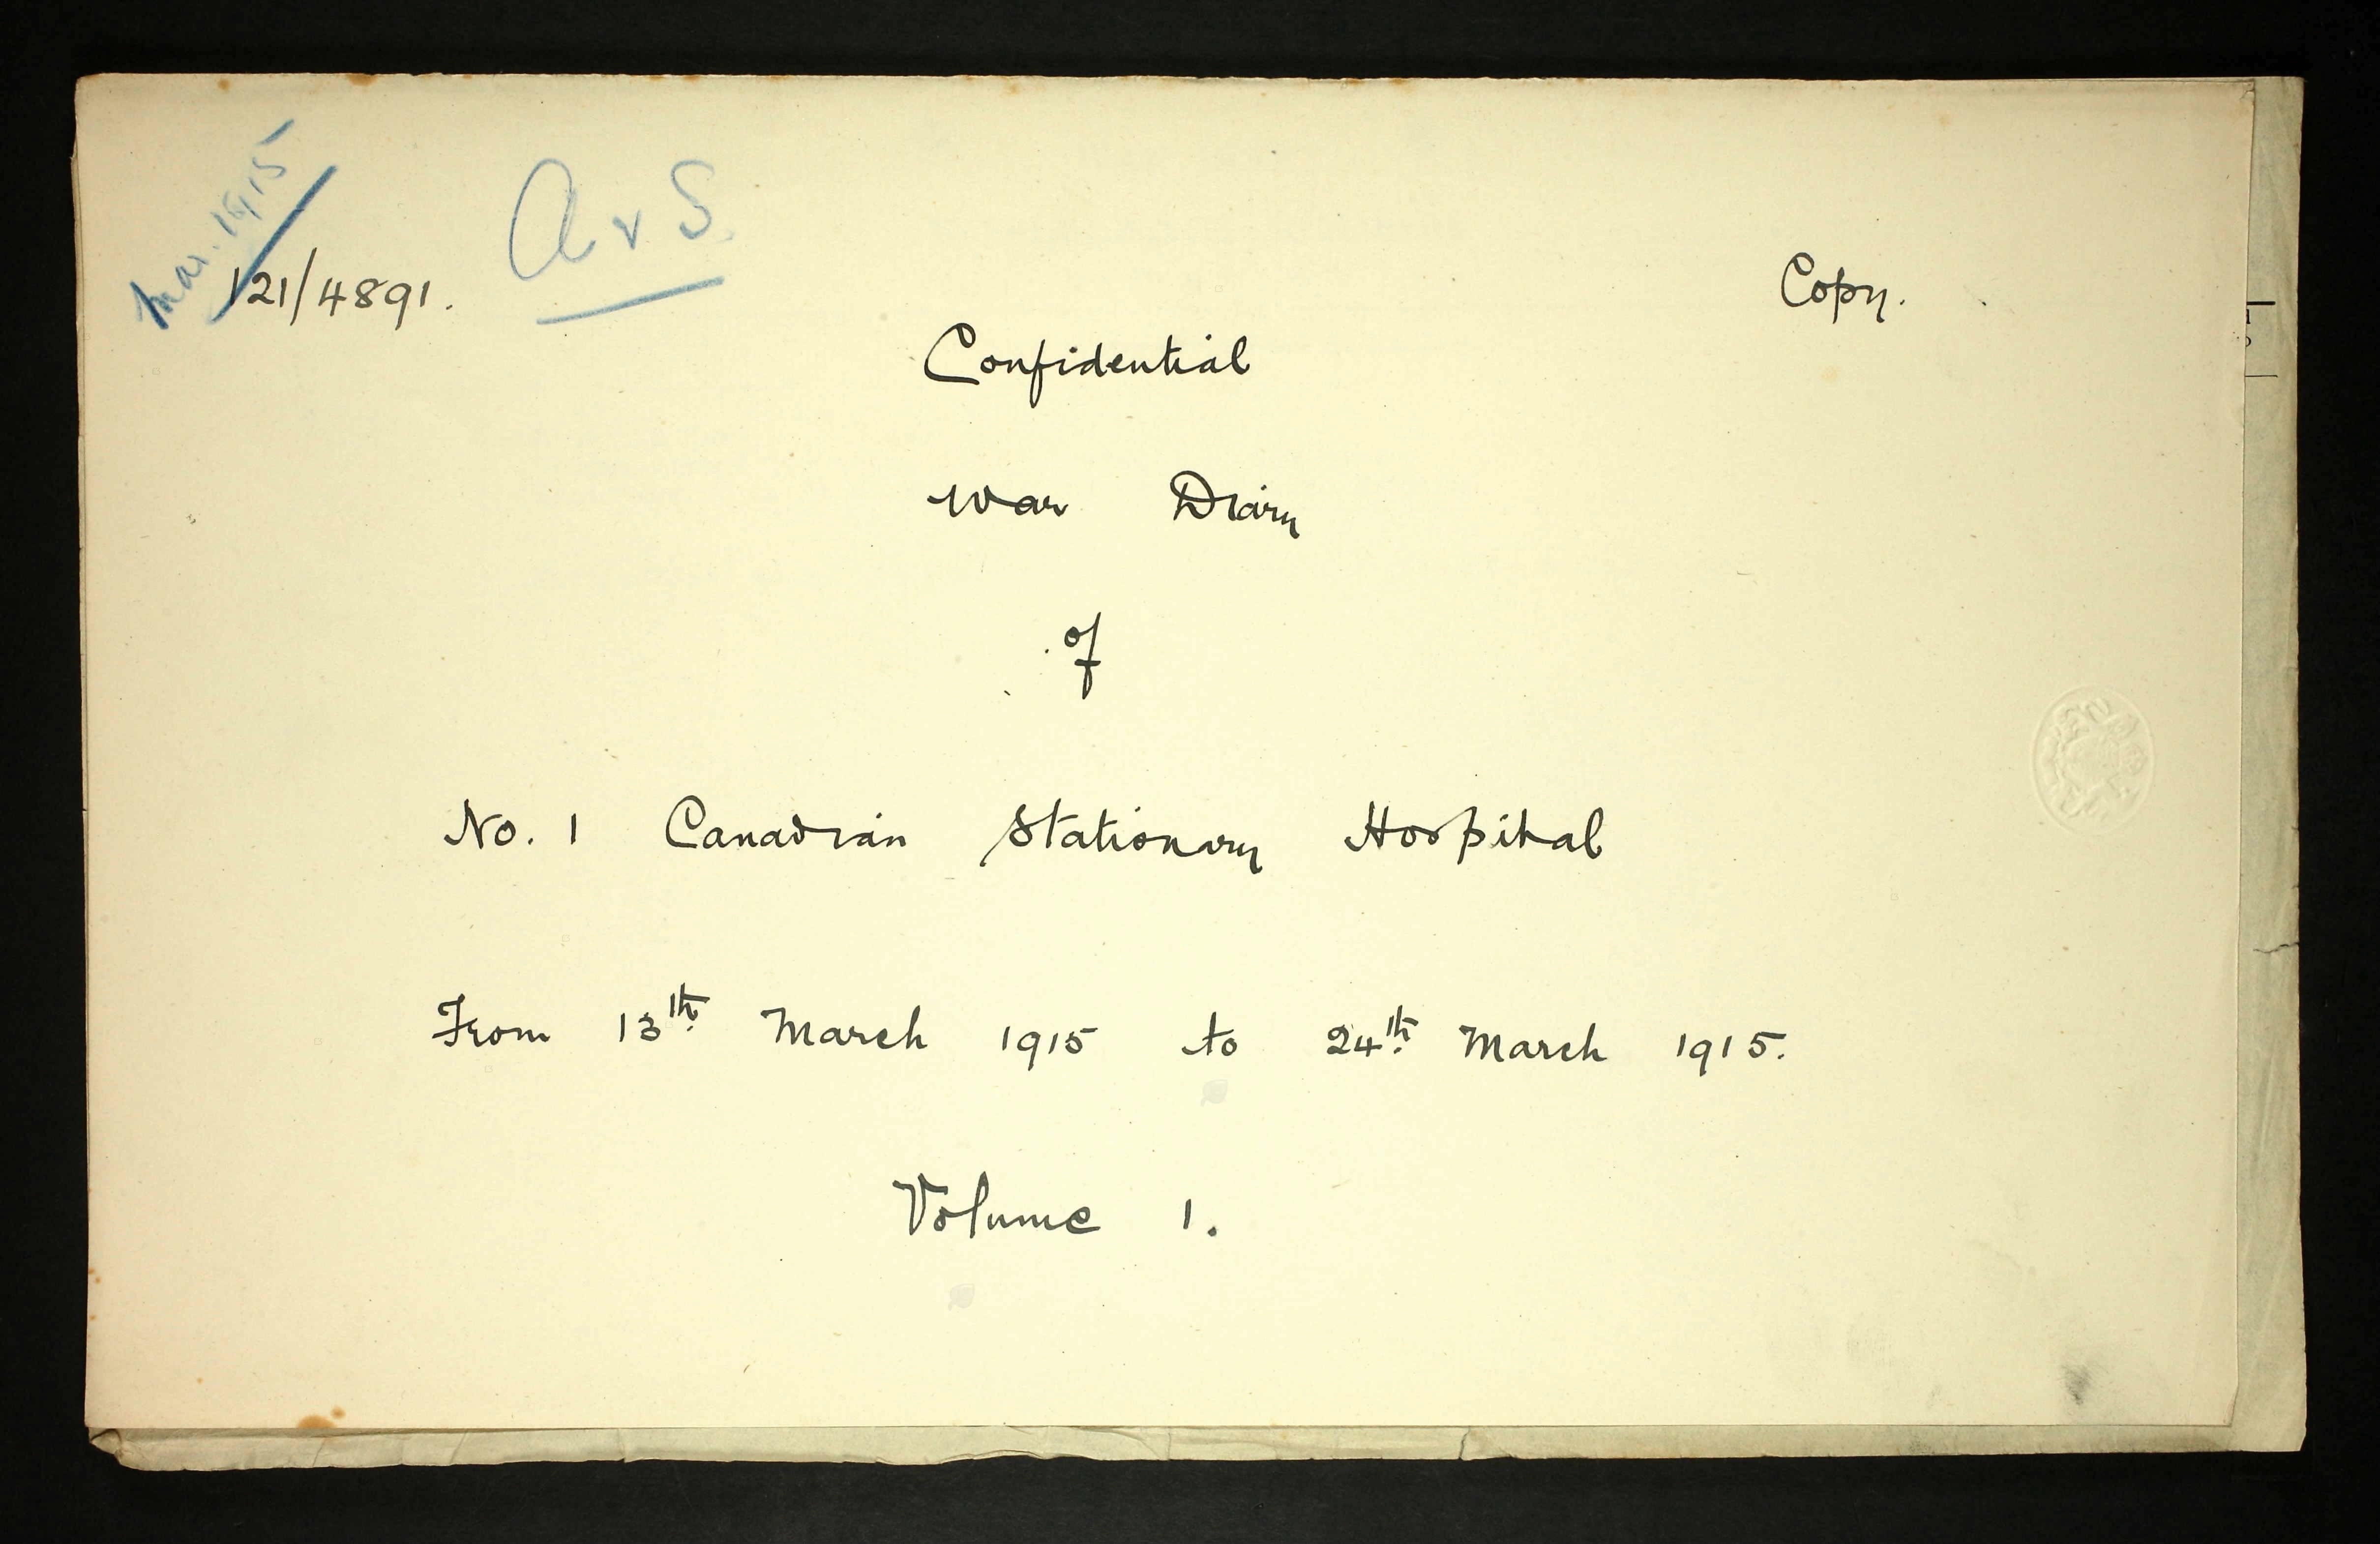 Mar. 1915
121/4891.
A & S.
Copy.
Confidential
War Diary
of
No. 1 Canadian Stationary Hospital
From 13th March 1915 to 24th March 1915.
Volume 1.